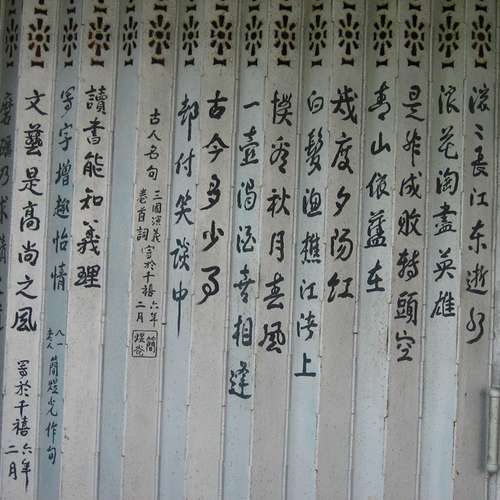 滾〻長江東逝水
浪花淘盡英雄
是非成敗轉頭空
青山依舊在
幾度夕陽紅
白髮漁樵江渚上
慣看秋月春風
一壺濁酒喜相逢
古今多少事
都付笑談中
古人名句
三國演義
卷首詞
寫於千禧六年
二月
讀書能知義理
寫字增趣怡情
八一
老人
簡煜光作句
文藝是高尚之風
寫於千禧六年
二月